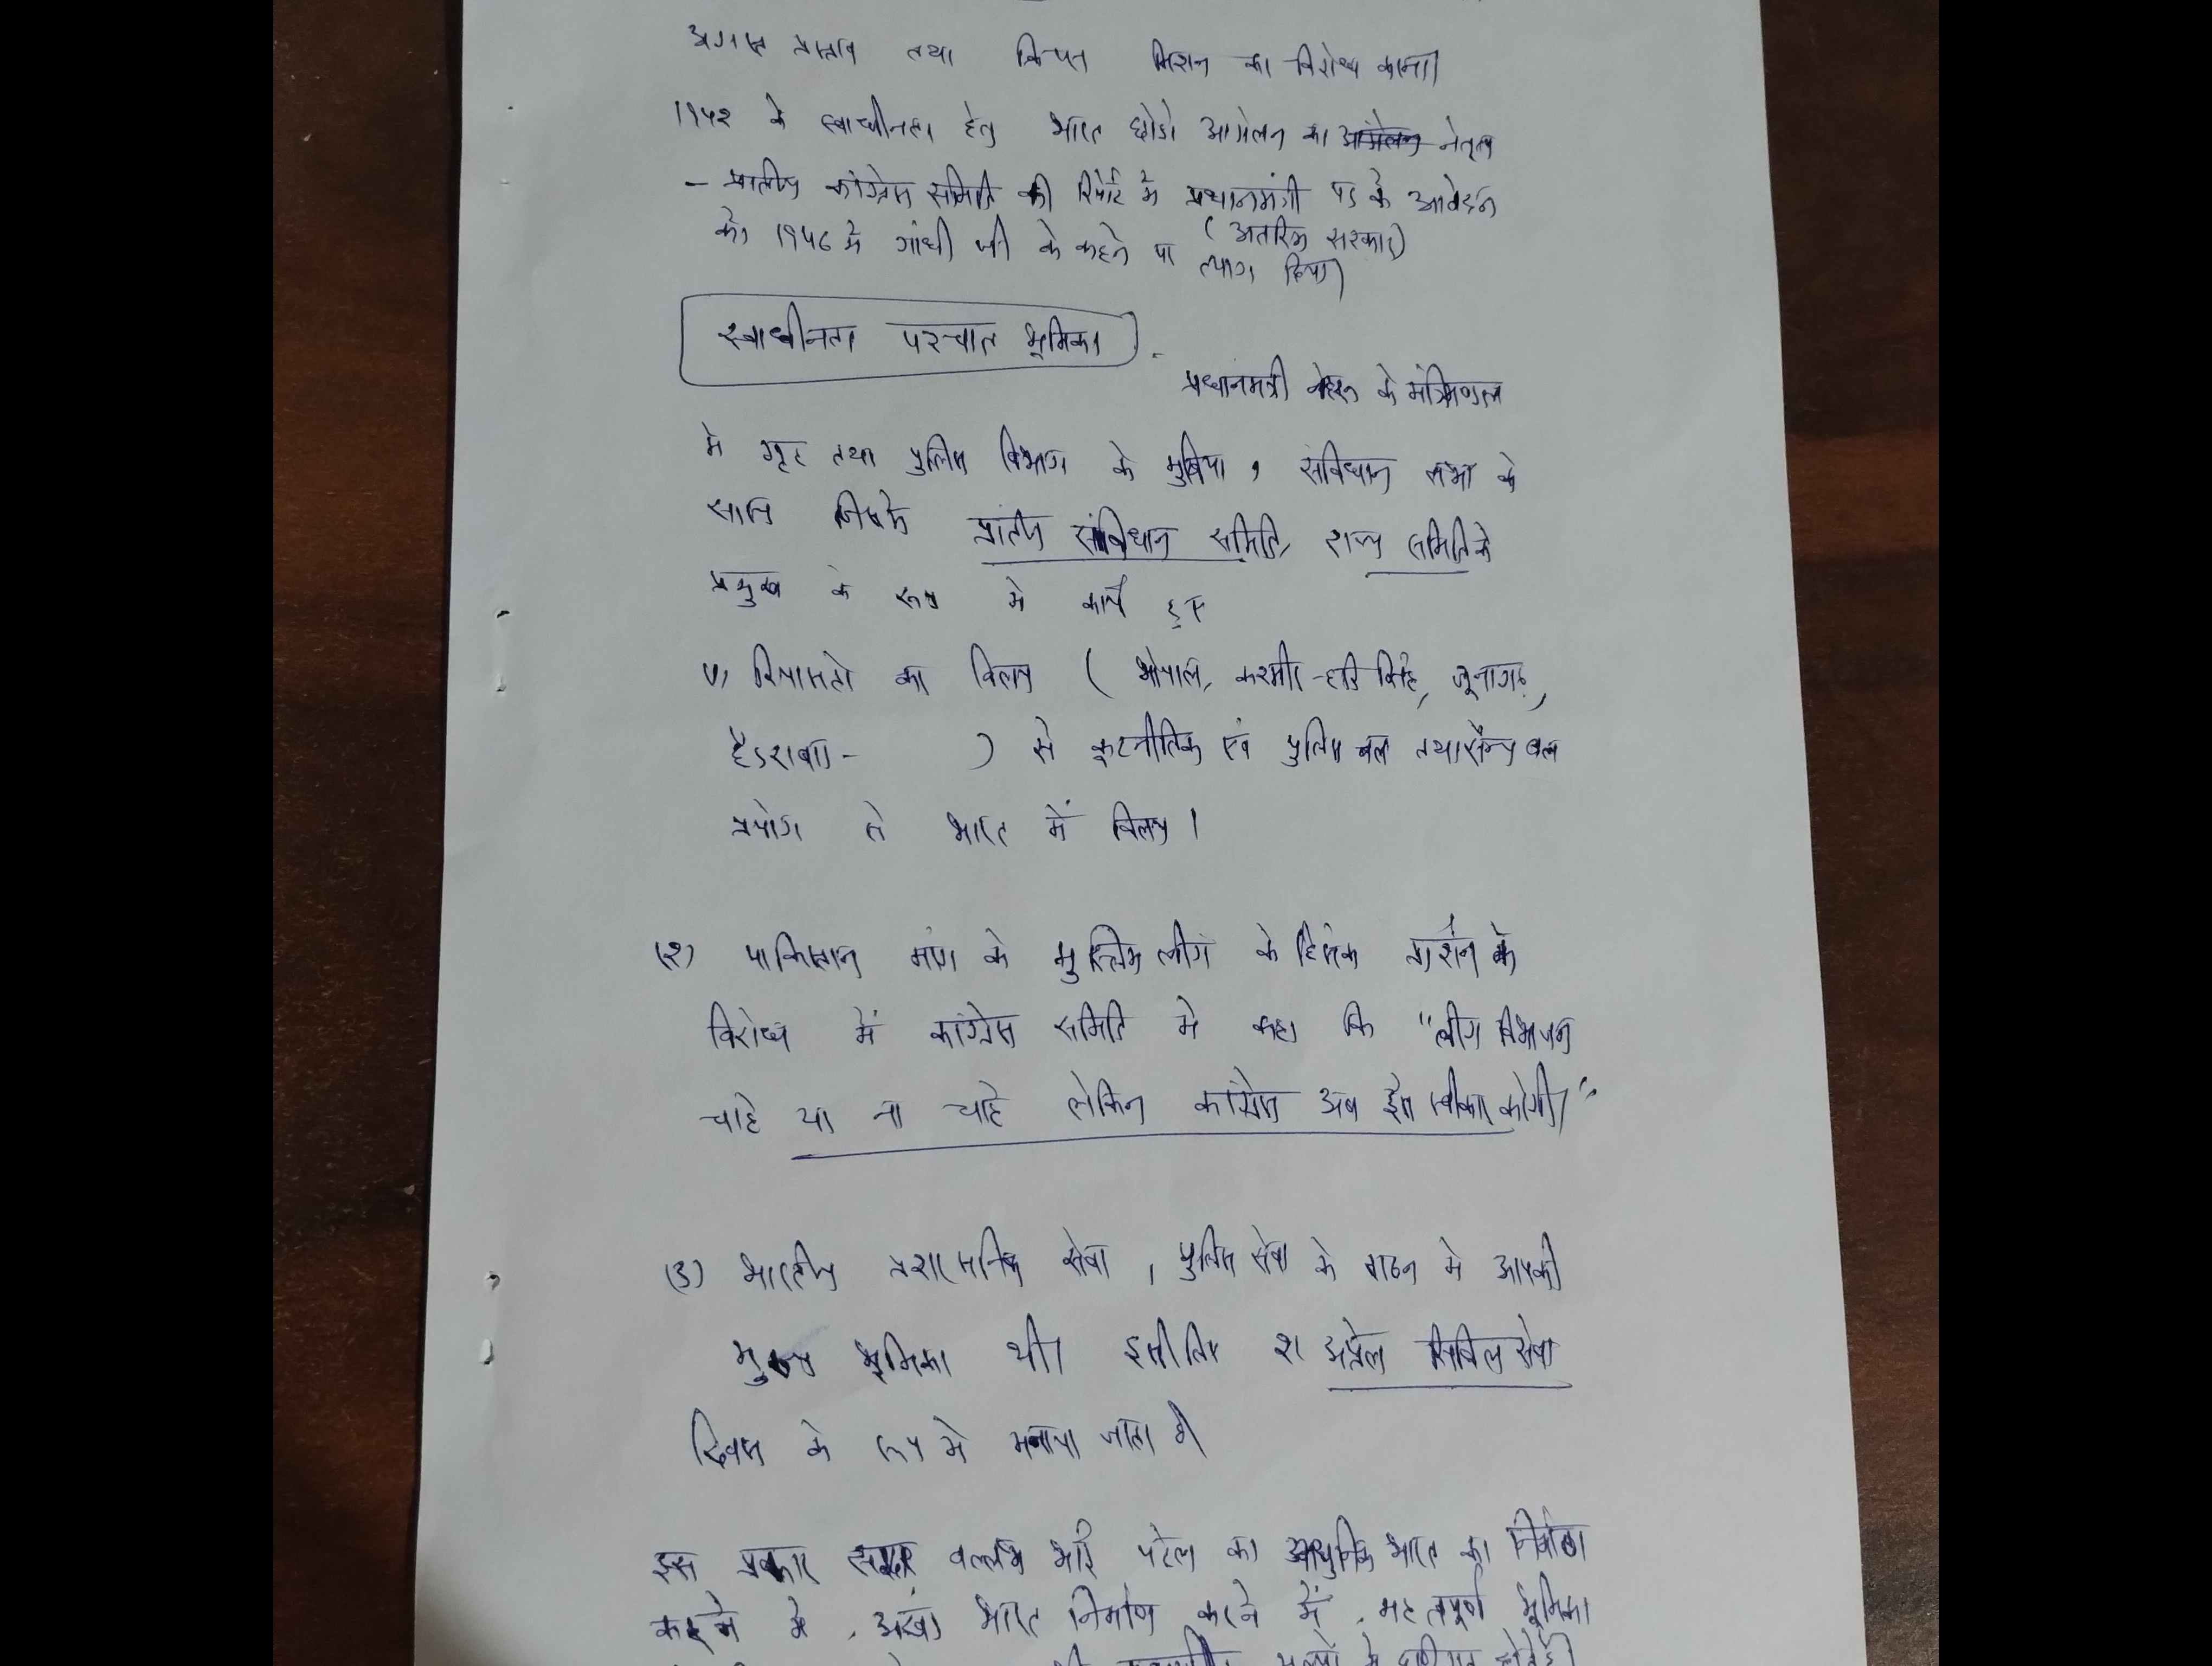 अगस्त प्रस्ताव तथा क्रिप्स मिशन का विरोध करना।
१९४२ के स्वाधीनता हेतु भारत छोडो आंदोलन का नेतृत्व
- प्रांतीय कांग्रेस समिति की रिपोर्ट में प्रधानमंत्री पद के आवेदन
(अंतरिम सरकार)
को १९४६ मे गांधी जी के कहने पर त्याग दिया)
स्वाधीनता पश्चात भूमिका
प्रधानमंत्री नेहरू के मंत्रिमण्डल
मे गृह तथा पुलिस विभाग के मुखिया, संविधान सभा के
प्रांतीय संविधान समिति, राज्य समिति के
प्रमुख के रूप मे कार्य हुए
१) रियासतो का विलय ( भोपाल, कश्मीर - हरि सिंह, जूनागढ़,
हैदराबाद - ) से कूटनीतिक एवं पुलिस बल तथा सैन्य बल
प्रयोग से भारत में विलय।
(२) पाकिस्तान मांग के मुस्लिम लीग के हिंसक प्रदर्शन के
विरोध में कांग्रेस समिति मे कहा कि "लीग विभाजन
चाहे या ना चाहे लेकिन कांग्रेस अब इसे स्वीकार करेगी।"
(३) भारतीय प्रशासनिक सेवा, पुलिस सेवा के गठन मे आपकी
मुख्य भूमिका थी। इसीलिए २१ अप्रेल सिविल सेवा
दिवस के रूप मे मनाया जाता है।
इस प्रकार सरदार वल्लभ भाई पटेल का आधुनिक भारत का निर्माता
करने मे, अखंड भारत निर्माण करने में, महत्वपूर्ण भूमिका